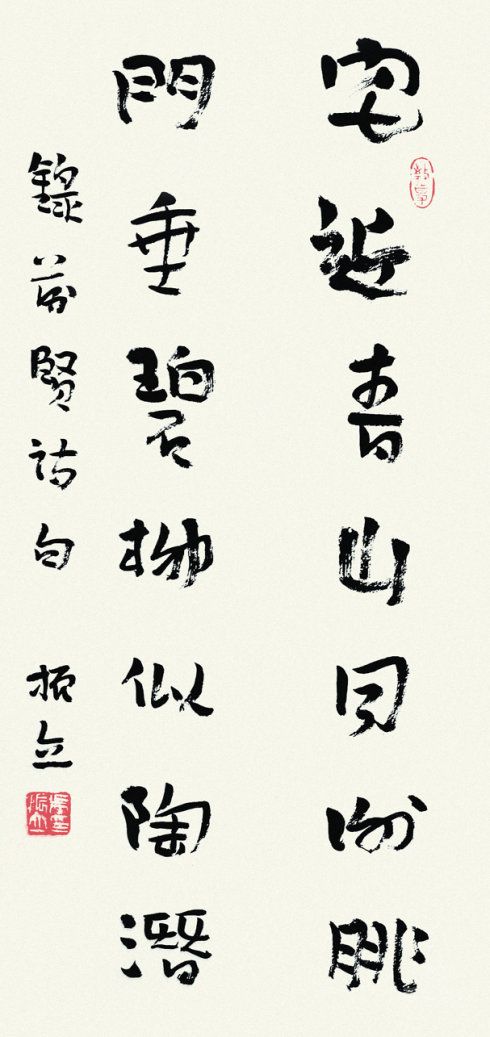 宅近青山同谢朓
門垂碧柳似陶潛
錄前賢詩句 振立